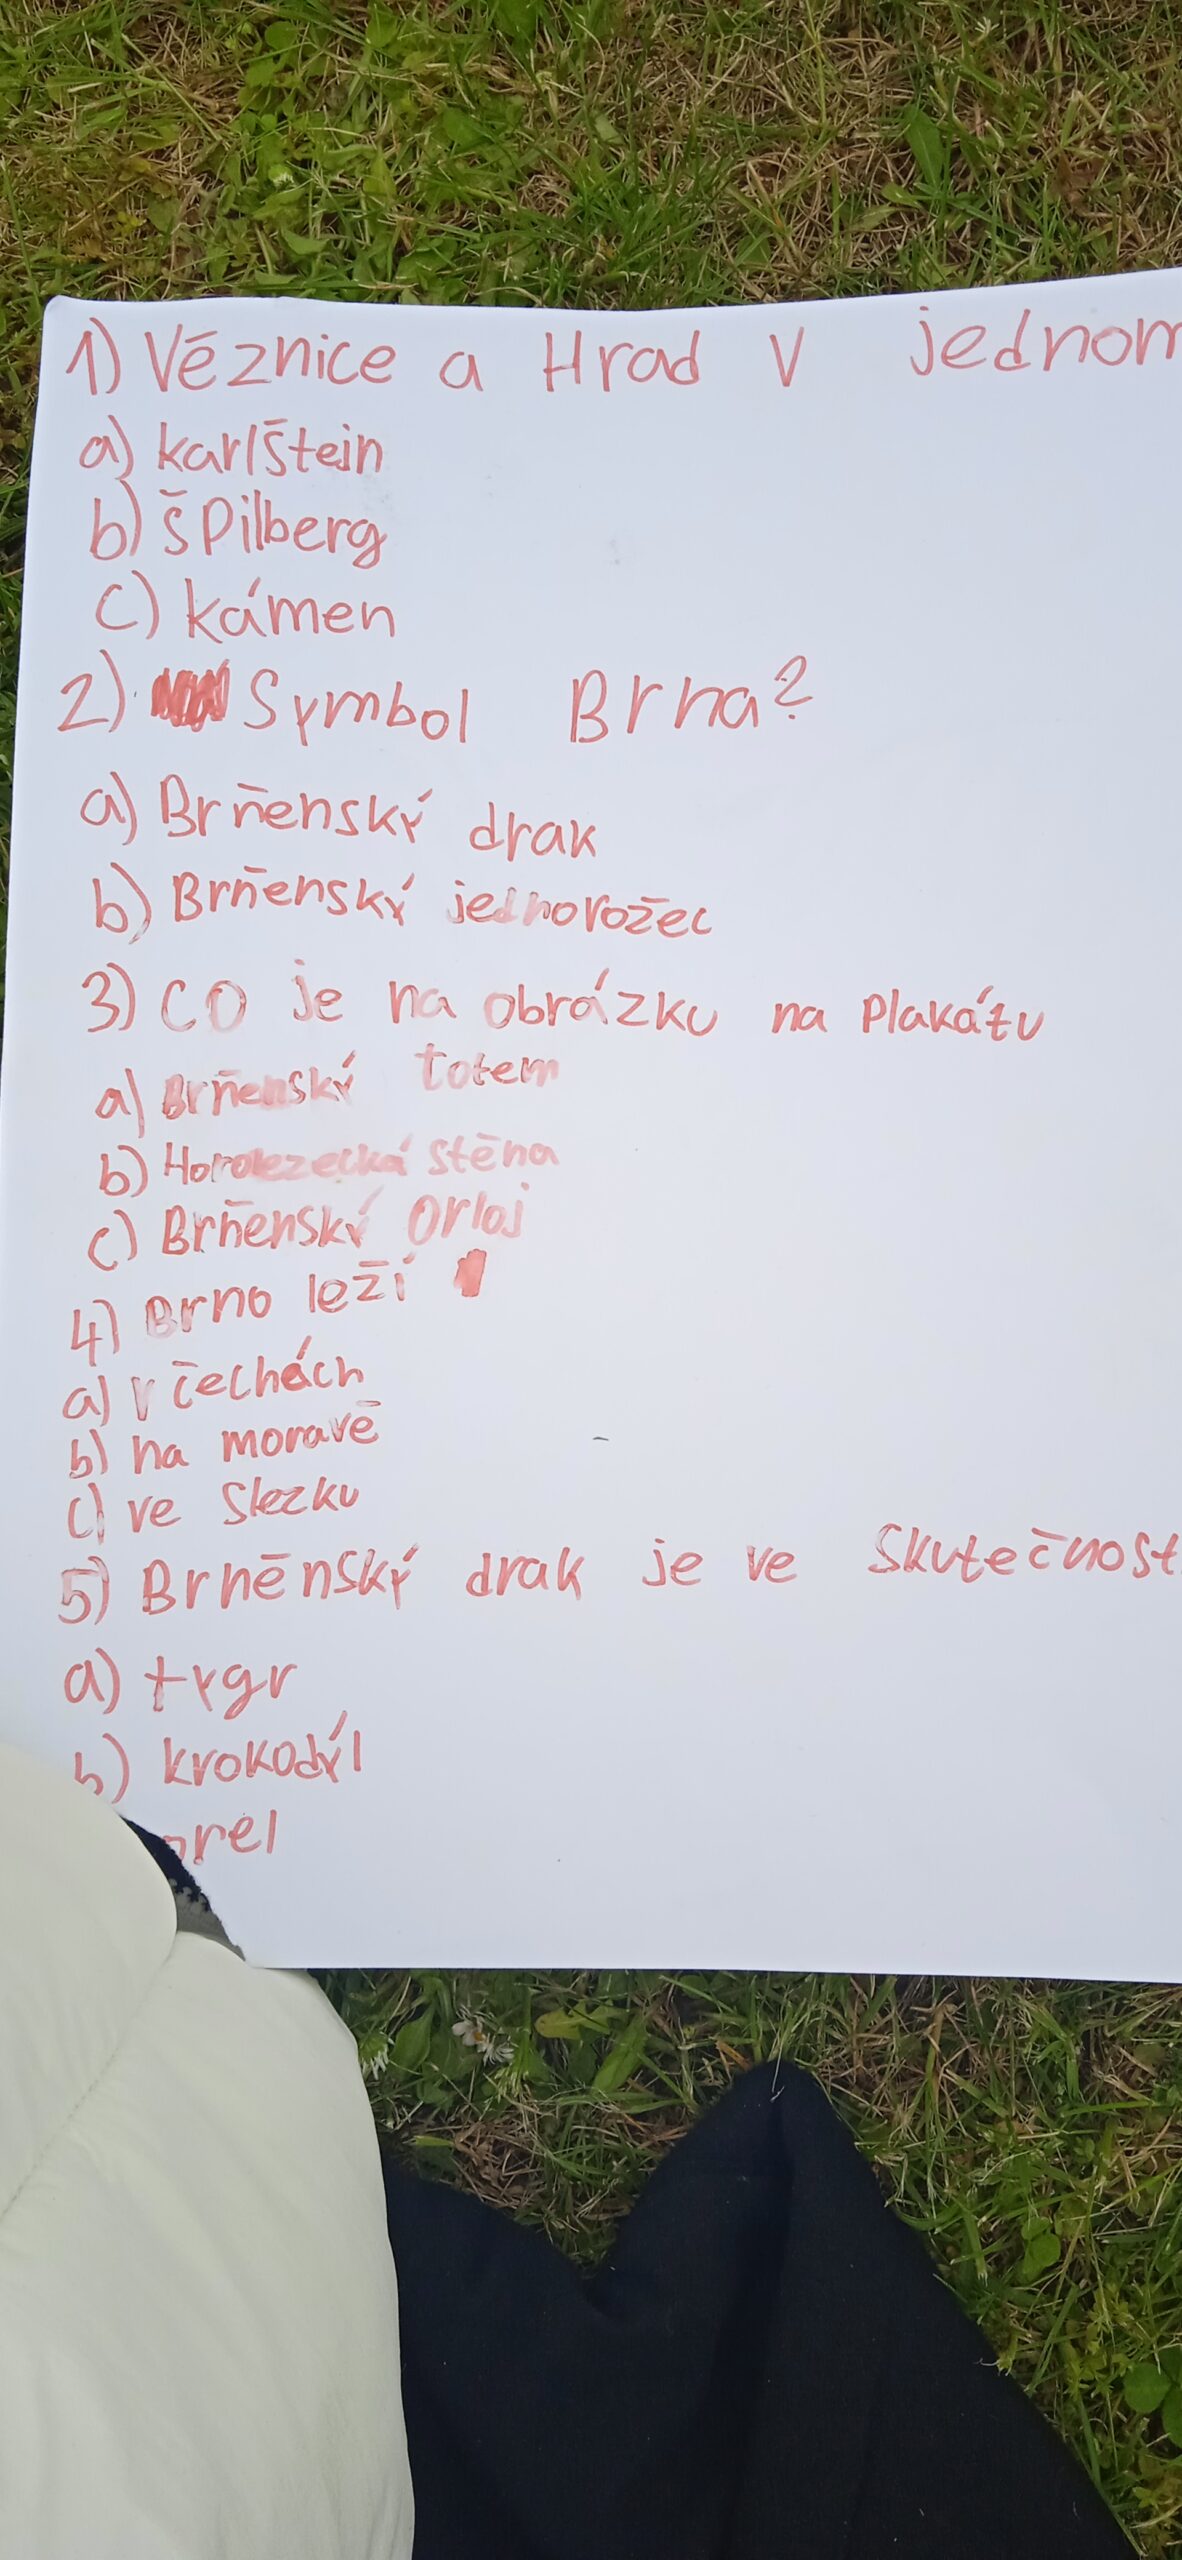 1) Věznice a Hrad v jednom
a) karlštein
b) špilberg
c) kámen
2) Symbol Brna?
a) Brňenský drak
b) Brňenský jednorožec
3) CO je na obrázku na Plakátu
a) Brňenský totem
b) Horolezecká stěna
c) Brňenský Orloj
4) Brno leží
a) v čechách
b) na moravě
c) ve Slezku
5) Brněnský drak je ve Skutečnost
a) tygr
b) krokodýl
orel